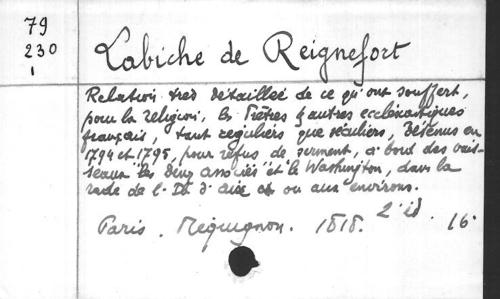 79
230
1
Labiche de Reignefort
Relation très détaillée de ce qu'ont souffert,
pour la religion, les Prêtres & autres ecclésiastiques
français, tant réguliers que séculiers, détenus en
1794 et 1795, pour refus de serment, à bord des vais-
seaux "les deux associés" et le Washington, dans la
rade de l'Ile d'Aix et ou aux environs.
Paris. Méquignon. 1818. 2e éd. 16°